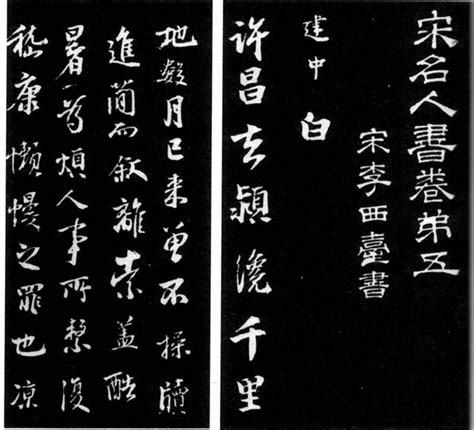 宋名人書卷第五
宋李西臺書
建中白
許昌去潁千里
地數月已來曾不操牘
進簡而敘離索蓋酷
暑為煩人事所繫復
嵇康懶慢之罪也凉